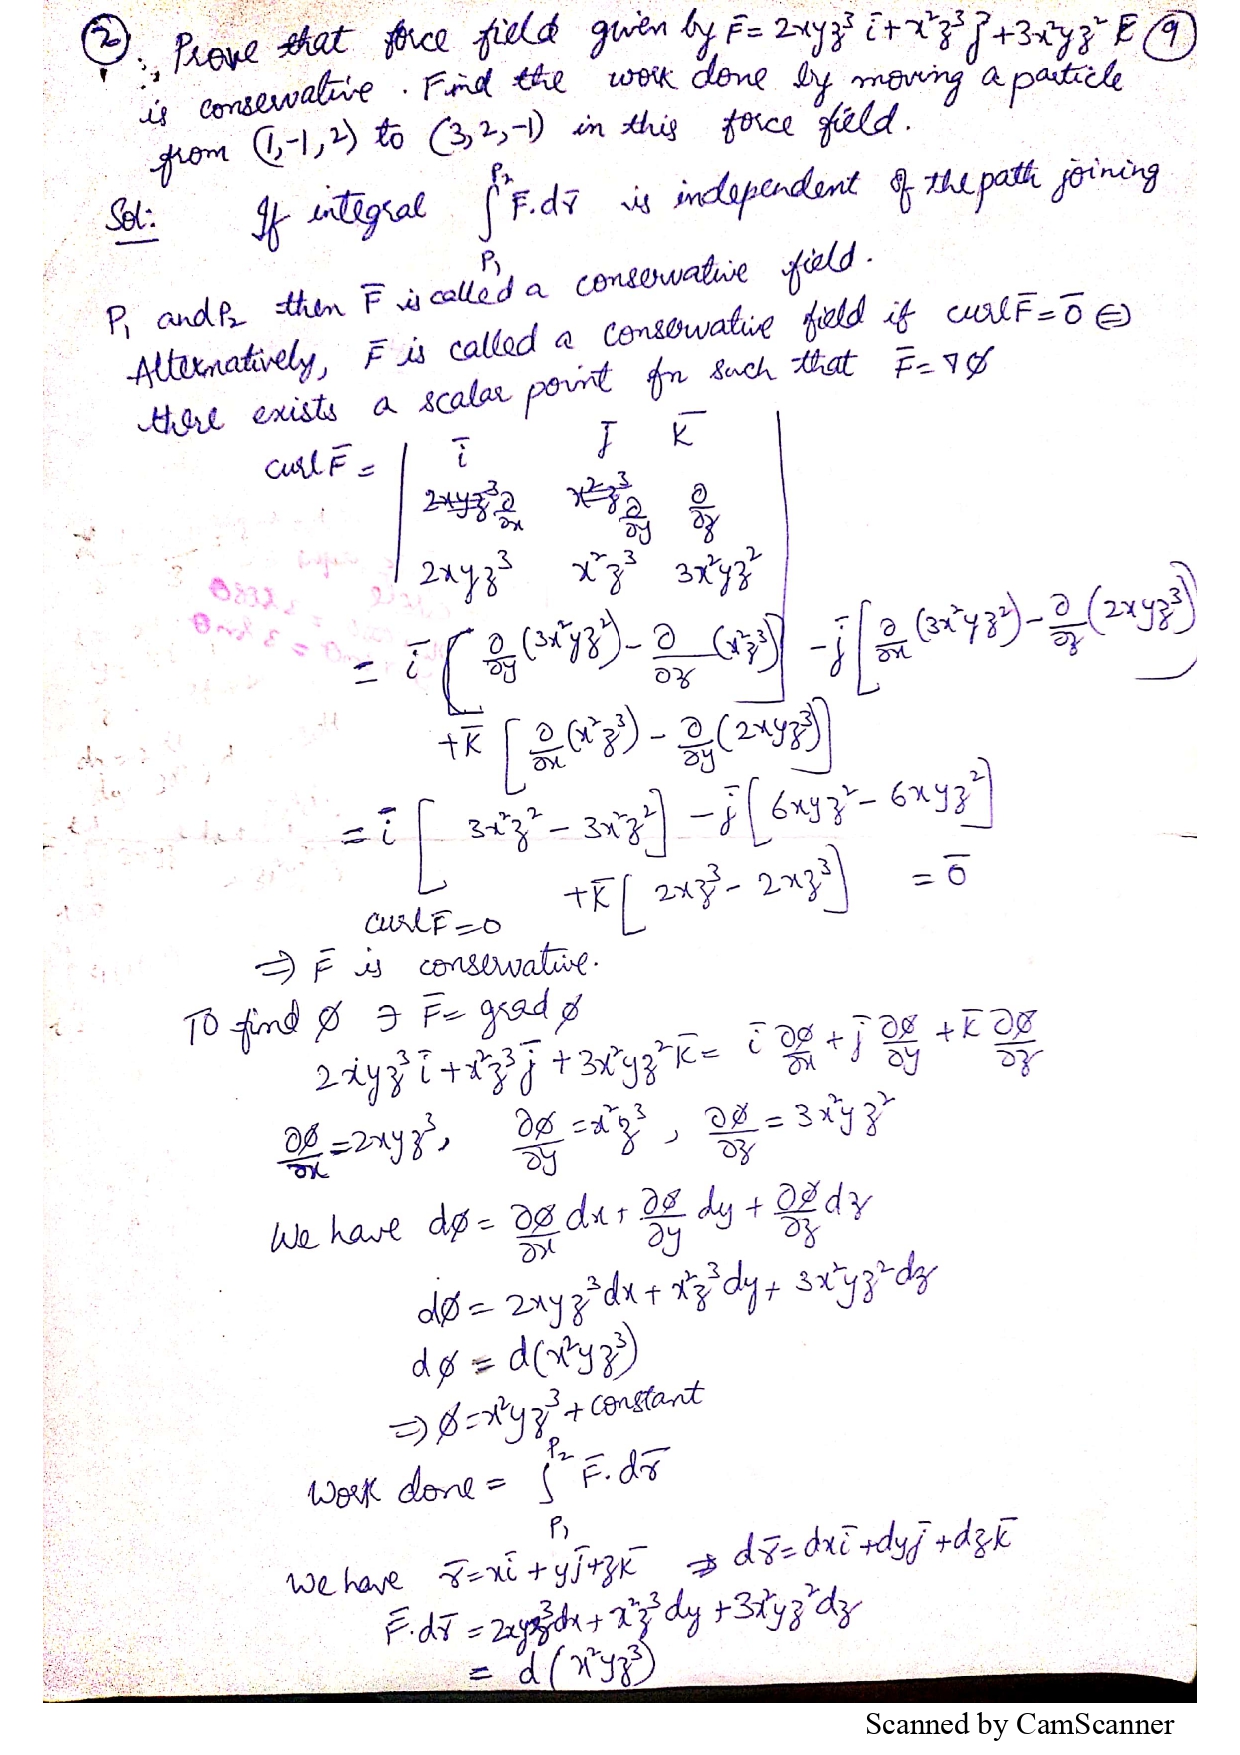 ② Prove that force field given by F̄ = 2xyz³ ī + x²z³ j̄ + 3x²yz² k̄ ⑨
is conservative. Find the work done by moving a particle
from (1,-1,2) to (3,2,-1) in this force field.
Sol: If integral ∫_{P₁}^{P₂} F̄.dr̄ is independent of the path joining
P₁ and P₂ then F̄ is called a conservative field.
Alternatively, F̄ is called a conservative field if curl F̄ = 0̄ ⇔
there exists a scalar point fn such that F̄ = ∇ø
curl F̄ = | ī j̄ k̄
∂/∂x ∂/∂y ∂/∂z
2xyz³ x²z³ 3x²yz² |
= ī [∂/∂y (3x²yz²) - ∂/∂z (x²z³)] - j̄ [∂/∂x (3x²yz²) - ∂/∂z (2xyz³)]
+ k̄ [∂/∂x (x²z³) - ∂/∂y (2xyz³)]
= ī [3x²z² - 3x²z²] - j̄ [6xyz² - 6xyz²]
+ k̄ [2xz³ - 2xz³] = 0̄
curl F̄ = 0
⇒ F̄ is conservative.
To find ø ∋ F̄ = grad ø
2xyz³ ī + x²z³ j̄ + 3x²yz² k̄ = ī ∂ø/∂x + j̄ ∂ø/∂y + k̄ ∂ø/∂z
∂ø/∂x = 2xyz³, ∂ø/∂y = x²z³, ∂ø/∂z = 3x²yz²
We have dø = ∂ø/∂x dx + ∂ø/∂y dy + ∂ø/∂z dz
dø = 2xyz³dx + x²z³dy + 3x²yz²dz
dø = d(x²yz³)
⇒ ø = x²yz³ + constant
Work done = ∫_{P₁}^{P₂} F̄.dr̄
We have r̄ = xī + yj̄ + zk̄ ⇒ dr̄ = dxī + dyj̄ + dzk̄
F̄.dr̄ = 2xyz³dx + x²z³dy + 3x²yz²dz
= d(x²yz³)
Scanned by CamScanner